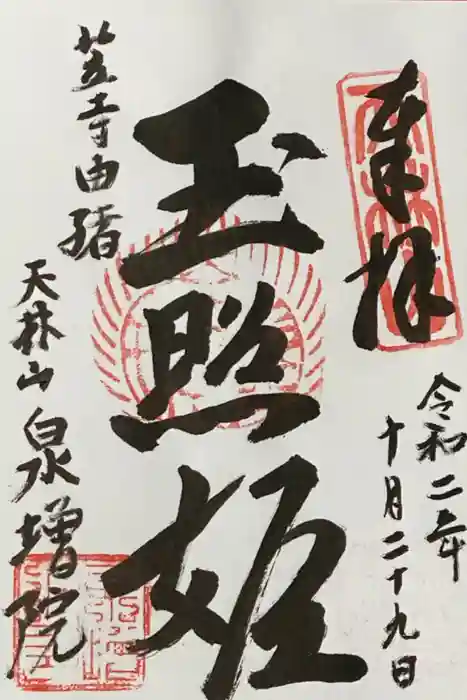 奉拝
令和二年
十月二十九日
玉照姫
笠寺由緒
天林山
泉増院